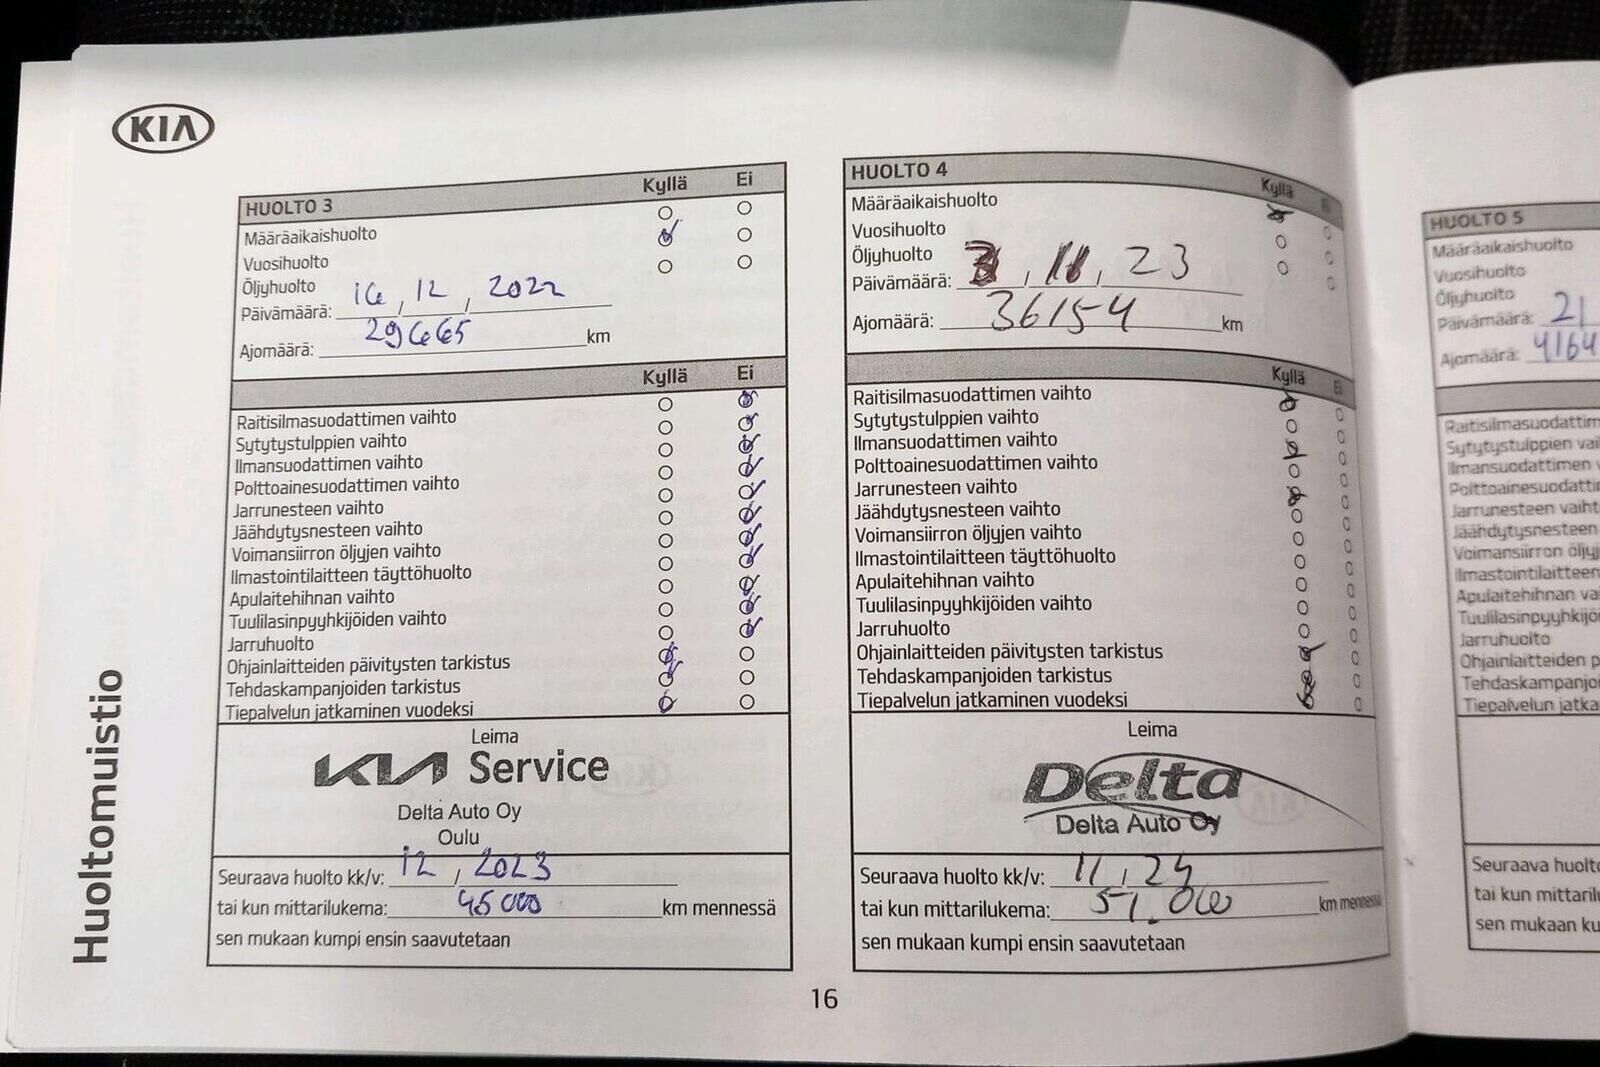 KIA
Huoltomuistio
HUOLTO 3 Kyllä Ei
Määräaikaishuolto
Vuosihuolto
Öljyhuolto
Päivämäärä: 16, 12, 2022
Ajomäärä: 29665 km
Kyllä Ei
Raitisilmasuodattimen vaihto
Sytytystulppien vaihto
Ilmansuodattimen vaihto
Polttoainesuodattimen vaihto
Jarrunesteen vaihto
Jäähdytysnesteen vaihto
Voimansiirron öljyjen vaihto
Ilmastointilaitteen täyttöhuolto
Apulaitehihnan vaihto
Tuulilasinpyyhkijöiden vaihto
Jarruhuolto
Ohjainlaitteiden päivitysten tarkistus
Tehdaskampanjoiden tarkistus
Tiepalvelun jatkaminen vuodeksi
Leima
KIA Service
Delta Auto Oy
Oulu
Seuraava huolto kk/v: 12 / 2023
tai kun mittarilukema: 45000 km mennessä
sen mukaan kumpi ensin saavutetaan
HUOLTO 4 Kyllä Ei
Määräaikaishuolto
Vuosihuolto
Öljyhuolto
Päivämäärä: , 11, 23
Ajomäärä: 36154 km
Kyllä Ei
Raitisilmasuodattimen vaihto
Sytytystulppien vaihto
Ilmansuodattimen vaihto
Polttoainesuodattimen vaihto
Jarrunesteen vaihto
Jäähdytysnesteen vaihto
Voimansiirron öljyjen vaihto
Ilmastointilaitteen täyttöhuolto
Apulaitehihnan vaihto
Tuulilasinpyyhkijöiden vaihto
Jarruhuolto
Ohjainlaitteiden päivitysten tarkistus
Tehdaskampanjoiden tarkistus
Tiepalvelun jatkaminen vuodeksi
Leima
Delta
Delta Auto Oy
Seuraava huolto kk/v: 11, 24
tai kun mittarilukema: 51.000 km mennessä
sen mukaan kumpi ensin saavutetaan
16
HUOLTO 5
Määräaikaishuolto
Vuosihuolto
Öljyhuolto
Päivämäärä: 21
Ajomäärä: 4164
Raitisilmasuodattim
Sytytystulppien vai
Ilmansuodattimen v
Polttoainesuodatti
Jarrunesteen vaiht
Jäähdytysnesteen
Voimansiirron öljyj
Ilmastointilaitteen
Apulaitehihnan va
Tuulilasinpyyhkijö
Jarruhuolto
Ohjainlaitteiden p
Tehdaskampanjo
Tiepalvelun jatka
Seuraava huolto
tai kun mittarilu
sen mukaan ku